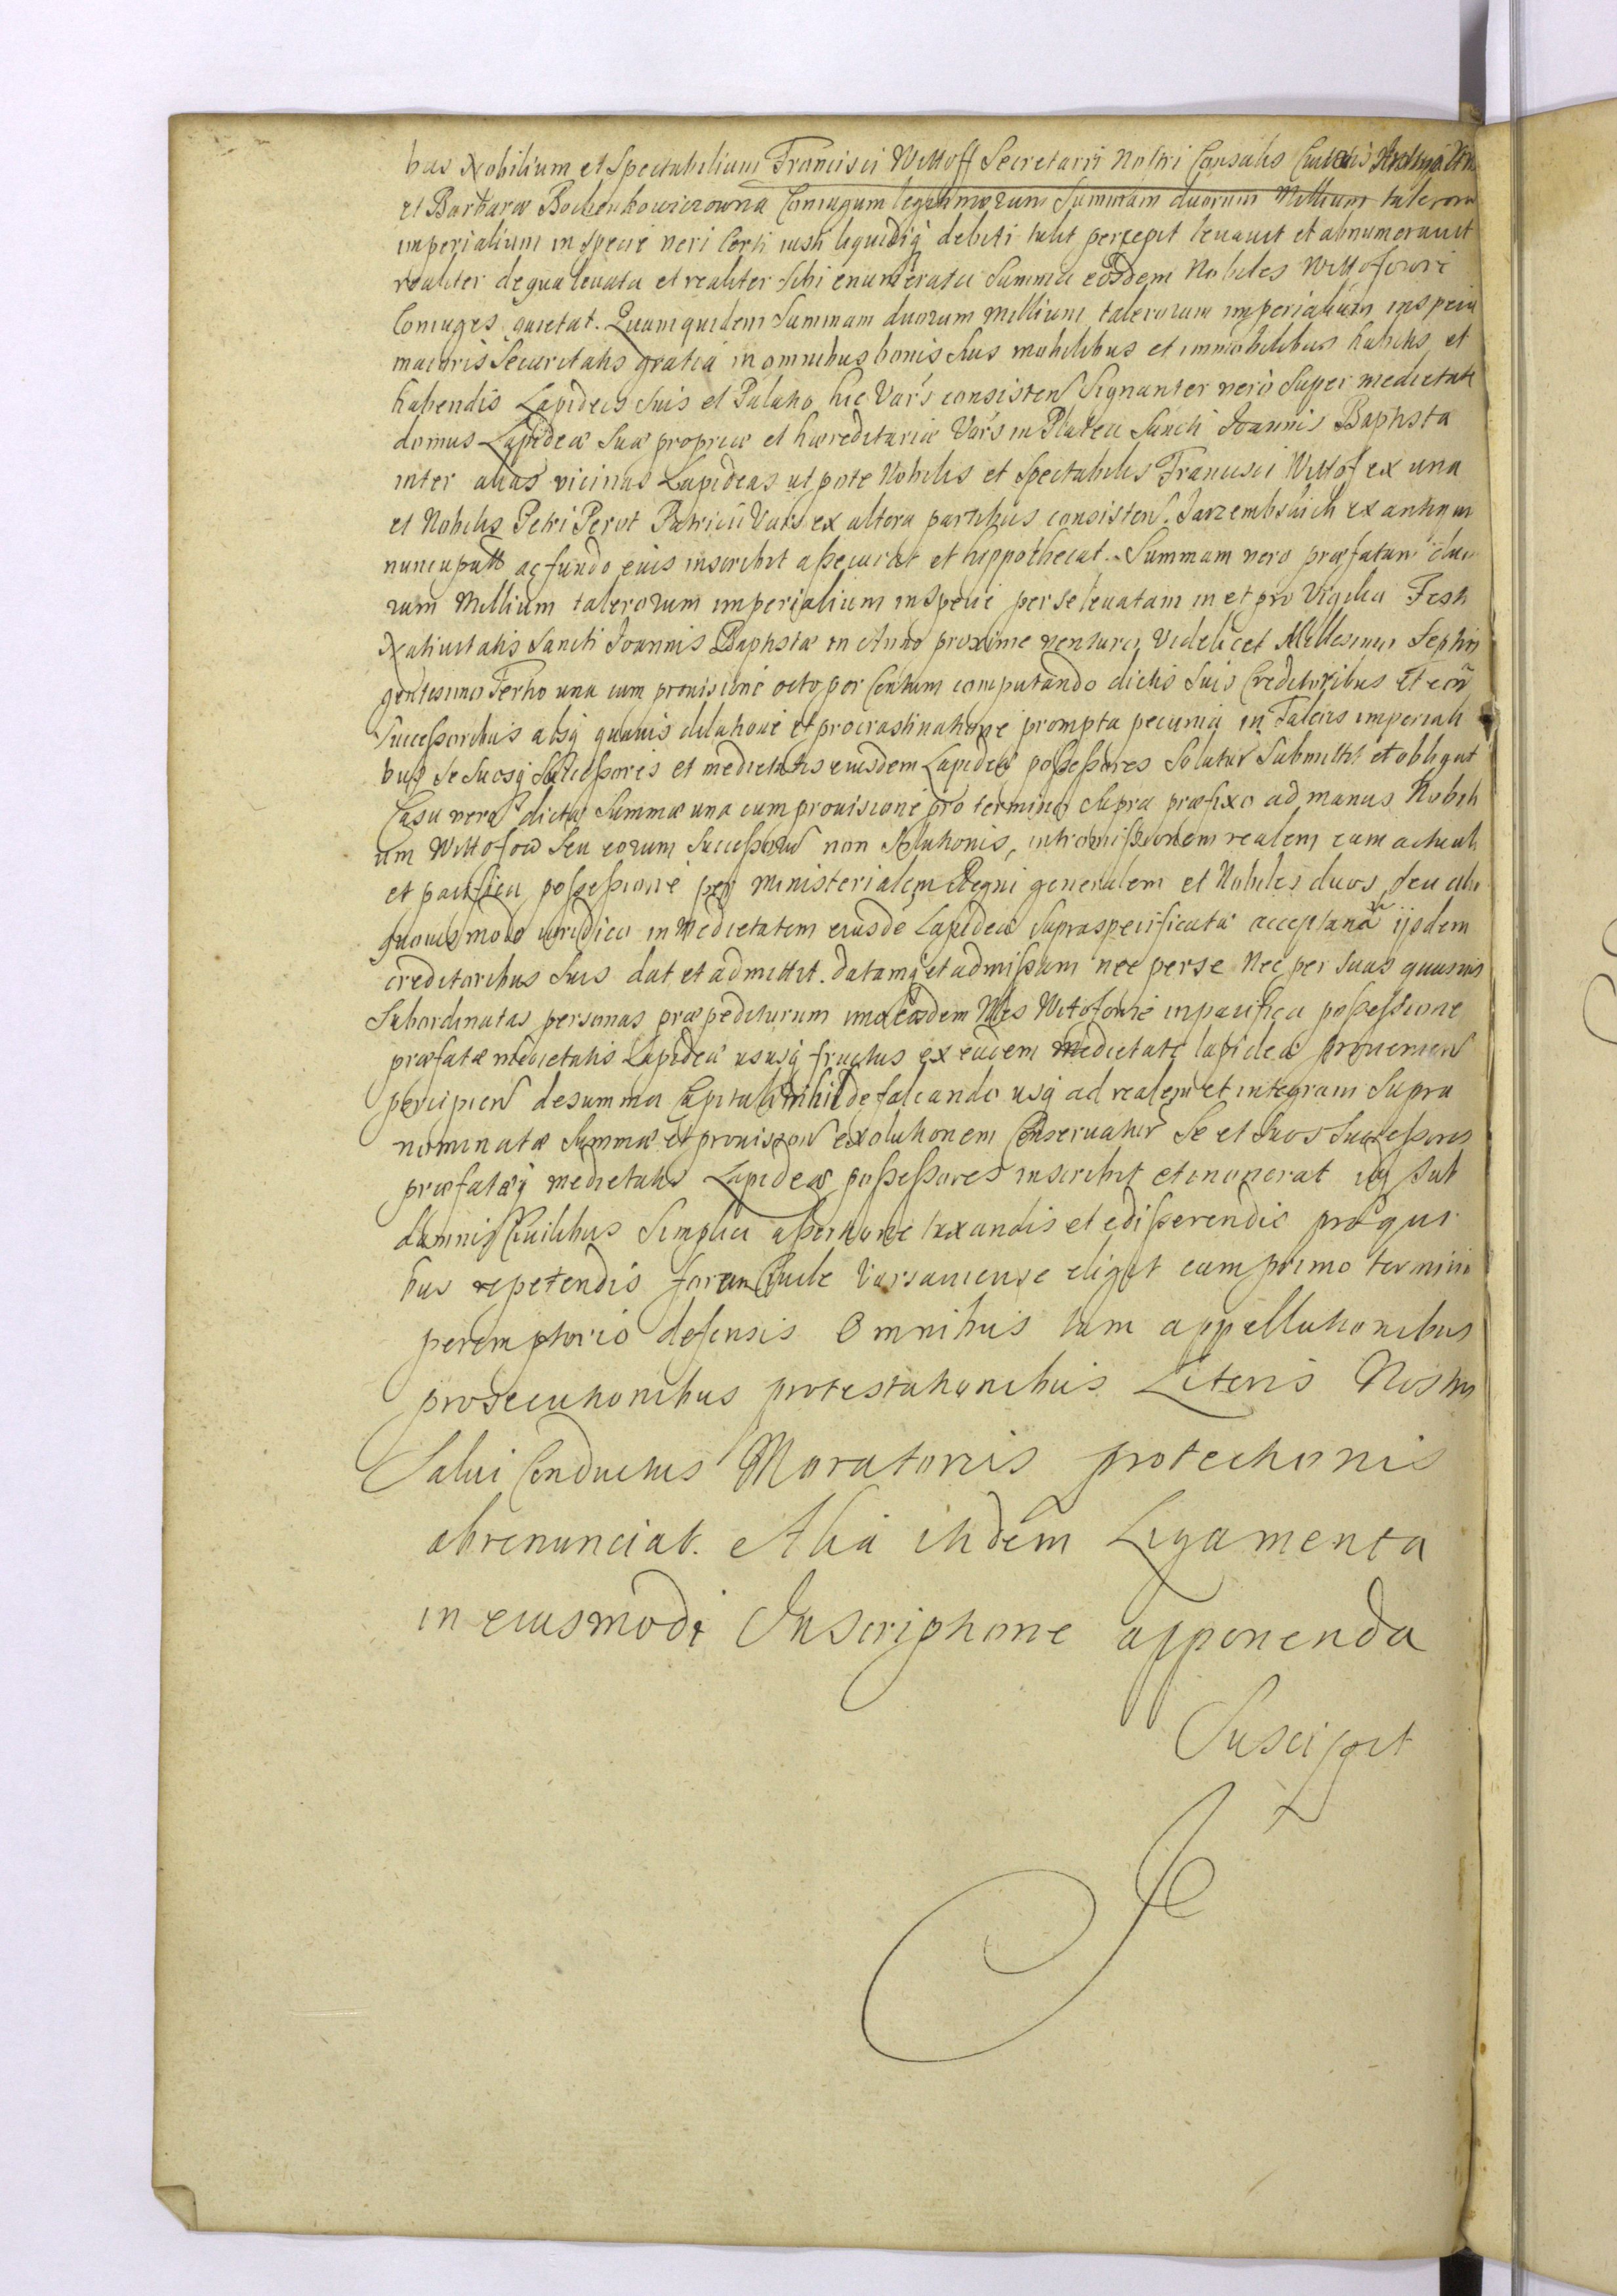 bus Nobilium et Spectabilium Francisci Wittoff Secretarii Nostri Consulis
et Barbaræ Bochenkowiczowna Coniugum legitimorum Summam duorum Millium taleror
imperialium in specie veri certi iusti liquidiq debiti tulit percepit levavit et abnumeravit
realiter de qua levata et realiter sibi enumerata Summa eosdem Nobiles Wittofowe
Coniuges quietat. Quamquidem Summam duorum millium talerorum imperialium in specie
maioris Securitatis gratia in omnibus bonis suis mobilibus et immobilibus habitis et
habendis Lapideis suis et Palatio hic Vars consisten Signanter vero Super medietate
domus Lapideæ Suæ propriæ et hæreditariæ Vars in Platea Sancti Joannis Baptista
inter alias vicinas Lapideas utpote Nobilis et Spectabilis Francisci Wittof ex una
et Nobilis Petri Perot Patricii Vars ex altera partibus consisten. Jarzembskich ex antiquo
nuncupat ac fundo eius inscribit assecurat et hippothecat. Summam vero præfatam duo
rum Millium talerorum imperialium in Specie per se levatam in et pro Vigilia Festi
Nativitatis Sancti Joannis Baptistæ in Anno proxime venturo, Videlicet Millesimo Septin
gentesimo Tertio una cum provisione octo per Centum computando dictis suis Creditoribus et eor
Successoribus absq quavis dilatione et procrastinatione prompta pecunia in Taleris imperiali
bus se Suosq Successores et medietatis eiusdem Lapideæ possessores Solutur Submittit et obligat
Casu vero dictæ Summæ una cum provisione pro termino supra præfixo ad manus Nobili
um Wittofow Seu eorum Successorū non Solutionis, intromissionem realem cum actuali
et pacifica possessione per Ministerialem Regni generalem et Nobiles duos, seu alio
quovis modo iuridico in Medietatem eiusdē Lapideæ supraspecificatæ acceptand iisdem
creditoribus suis dat et admittit. Datamq et admissam nec per se Nec per suas quasvis
Subordinatas personas præpediturum imo eosdem Nbles Witofowie in pacifica possessione
præfatæ medietatis Lapideæ ususq fructus ex eadem Medietate lapideæ provenien
percipien de summa Capitali nihil defalcando usq ad realem et integram Supra
nominatæ Summæ et provision exolutionem Conservatur Se et Suos Successores
præfatæq medietatis Lapideæ possessores inscribit et inonerat idq sub
damnis Civilibus Simplici assertione taxandis et edisserendis pro qui
bus repetendis forum Civile Varsaviense eligit cum primo termino
peremptorio defensis Omnibus tum appellationibus
prosecutionibus protestationibus Literis Nostris
Salvi Conductus Moratoriis protectionis
abrenunciat. Alia itidem Ligamenta
in eiusmodi Inscriptione apponenda
Suscipit